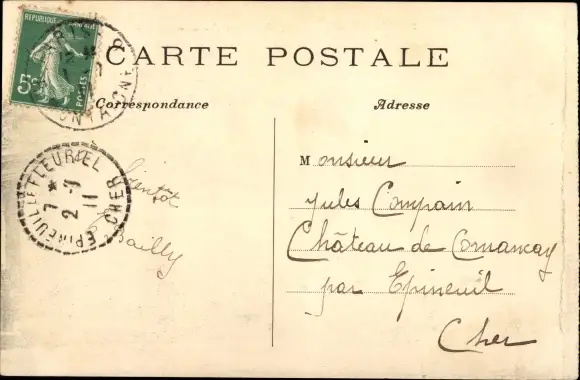 REPUBLIQUE FRANÇAISE
5c
POSTES
CARTE POSTALE
Correspondance
Adresse
EPINEUIL LE FLEURIEL
CHER
7 *
2 -1
11
bientôt
Bailly
Monsieur
Jules Compain
Château de Cornançay
par Epineuil
Cher